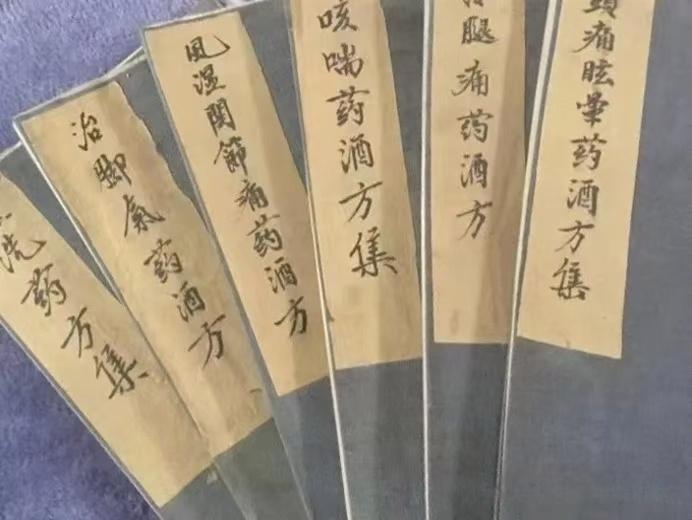 洗药方集
治脚气药酒方
风湿関節痛药酒方
咳喘药酒方集
腿痛药酒方
頭痛眩晕药酒方集